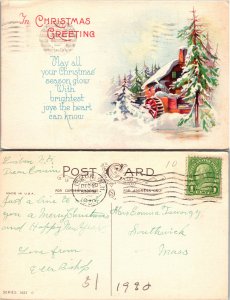 In CHRISTMAS
GREETING
May all
your Christmas
season glow
With
brightest
joys the heart
can know
10
POST CARD
FOR CORRESPONDENCE
FOR ADDRESS ONLY
MADE IN U.S.A.
Just a line to
you a Merry Christmas
and Happy New Year
Love from
Miss Emma
Southwick
Mass
1
SERIES
31
1930